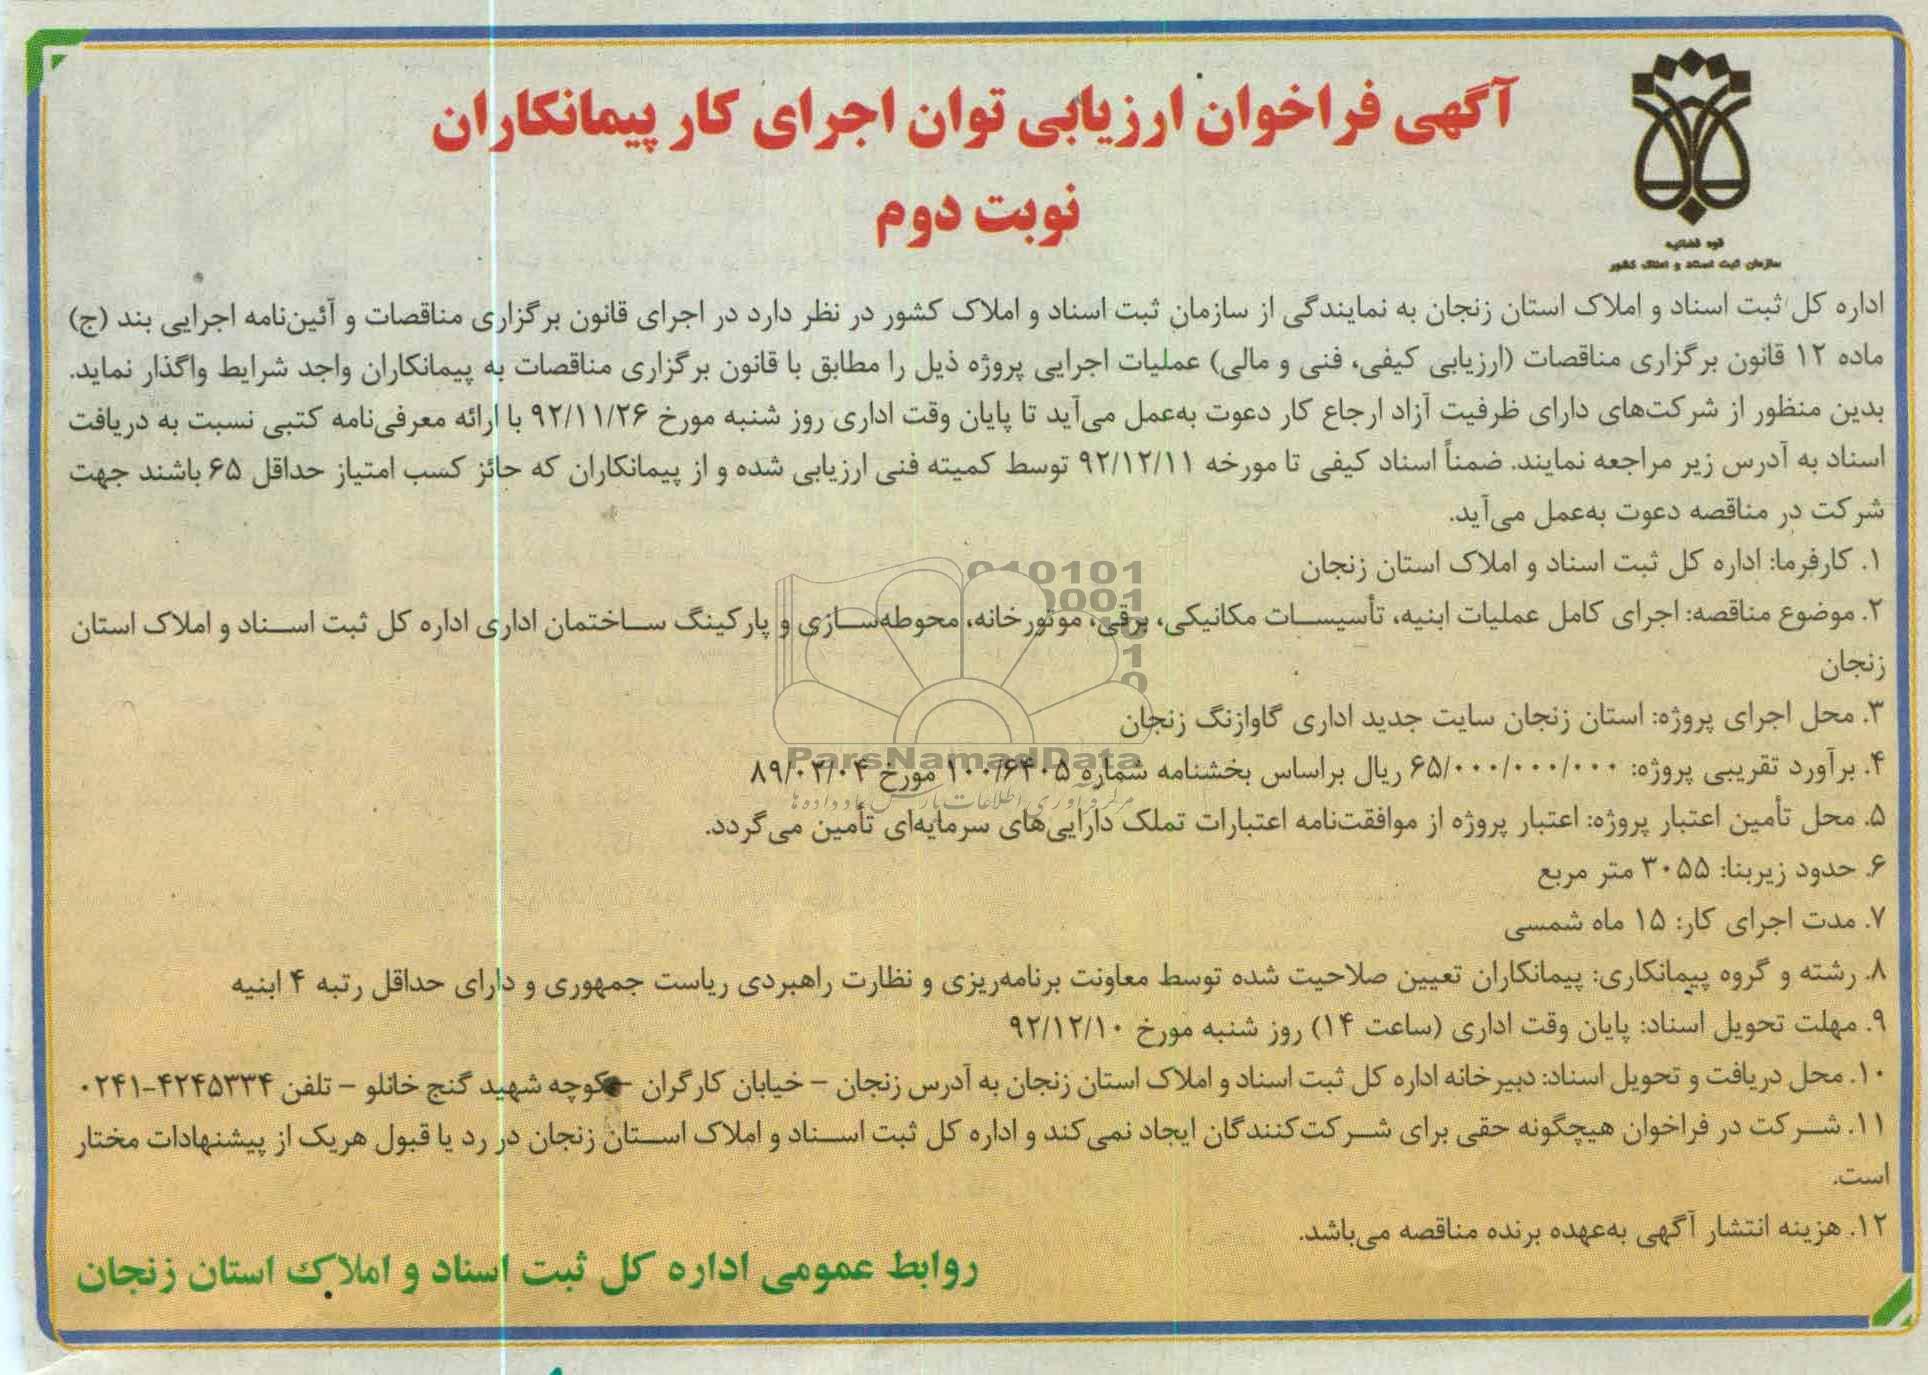 آگهی فراخوان ارزیابی توان اجرای کار پیمانکاران
نوبت دوم
قوه قضائیه
سازمان ثبت اسناد و املاک کشور
اداره کل ثبت اسناد و املاک استان زنجان به نمایندگی از سازمان ثبت اسناد و املاک کشور در نظر دارد در اجرای قانون برگزاری مناقصات و آئین‌نامه اجرایی بند (ج)
ماده ۱۲ قانون برگزاری مناقصات (ارزیابی کیفی، فنی و مالی) عملیات اجرایی پروژه ذیل را مطابق با قانون برگزاری مناقصات به پیمانکاران واجد شرایط واگذار نماید.
بدین منظور از شرکت‌های دارای ظرفیت آزاد ارجاع کار دعوت به‌عمل می‌آید تا پایان وقت اداری روز شنبه مورخ ۹۲/۱۱/۲۶ با ارائه معرفی‌نامه کتبی نسبت به دریافت
اسناد به آدرس زیر مراجعه نمایند. ضمناً اسناد کیفی تا مورخه ۹۲/۱۲/۱۱ توسط کمیته فنی ارزیابی شده و از پیمانکاران که حائز کسب امتیاز حداقل ۶۵ باشند جهت
شرکت در مناقصه دعوت به‌عمل می‌آید.
۱. کارفرما: اداره کل ثبت اسناد و املاک استان زنجان
۲. موضوع مناقصه: اجرای کامل عملیات ابنیه، تأسیسات مکانیکی، برقی، موتورخانه، محوطه‌سازی و پارکینگ ساختمان اداری اداره کل ثبت اسناد و املاک استان
زنجان
۳. محل اجرای پروژه: استان زنجان سایت جدید اداری گاوازنگ زنجان
ParsNamadData
۴. برآورد تقریبی پروژه: ۶۵/۰۰۰/۰۰۰/۰۰۰ ریال براساس بخشنامه شماره ۱۰۰/۶۴۰۵ مورخ ۸۹/۰۲/۰۴
مرکز فرآوری اطلاعات پارس نماد داده‌ها
۵. محل تأمین اعتبار پروژه: اعتبار پروژه از موافقت‌نامه اعتبارات تملک دارایی‌های سرمایه‌ای تأمین می‌گردد.
۶. حدود زیربنا: ۳۰۵۵ متر مربع
۷. مدت اجرای کار: ۱۵ ماه شمسی
۸. رشته و گروه پیمانکاری: پیمانکاران تعیین صلاحیت شده توسط معاونت برنامه‌ریزی و نظارت راهبردی ریاست جمهوری و دارای حداقل رتبه ۴ ابنیه
۹. مهلت تحویل اسناد: پایان وقت اداری (ساعت ۱۴) روز شنبه مورخ ۹۲/۱۲/۱۰
۱۰. محل دریافت و تحویل اسناد: دبیرخانه اداره کل ثبت اسناد و املاک استان زنجان به آدرس زنجان – خیابان کارگران – کوچه شهید گنج خانلو – تلفن ۴۲۴۵۳۳۴-۰۲۴۱
۱۱. شرکت در فراخوان هیچگونه حقی برای شرکت‌کنندگان ایجاد نمی‌کند و اداره کل ثبت اسناد و املاک استان زنجان در رد یا قبول هریک از پیشنهادات مختار
است.
۱۲. هزینه انتشار آگهی به‌عهده برنده مناقصه می‌باشد.
روابط عمومی اداره کل ثبت اسناد و املاک استان زنجان